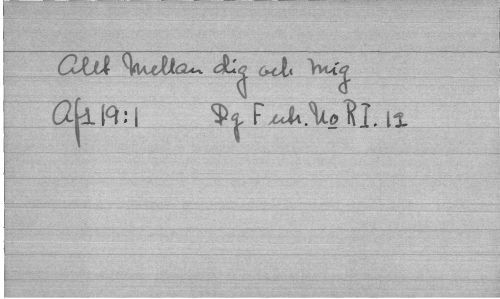 Allt mellan dig och mig
Af119:1 Dg F utr. No RI. 12